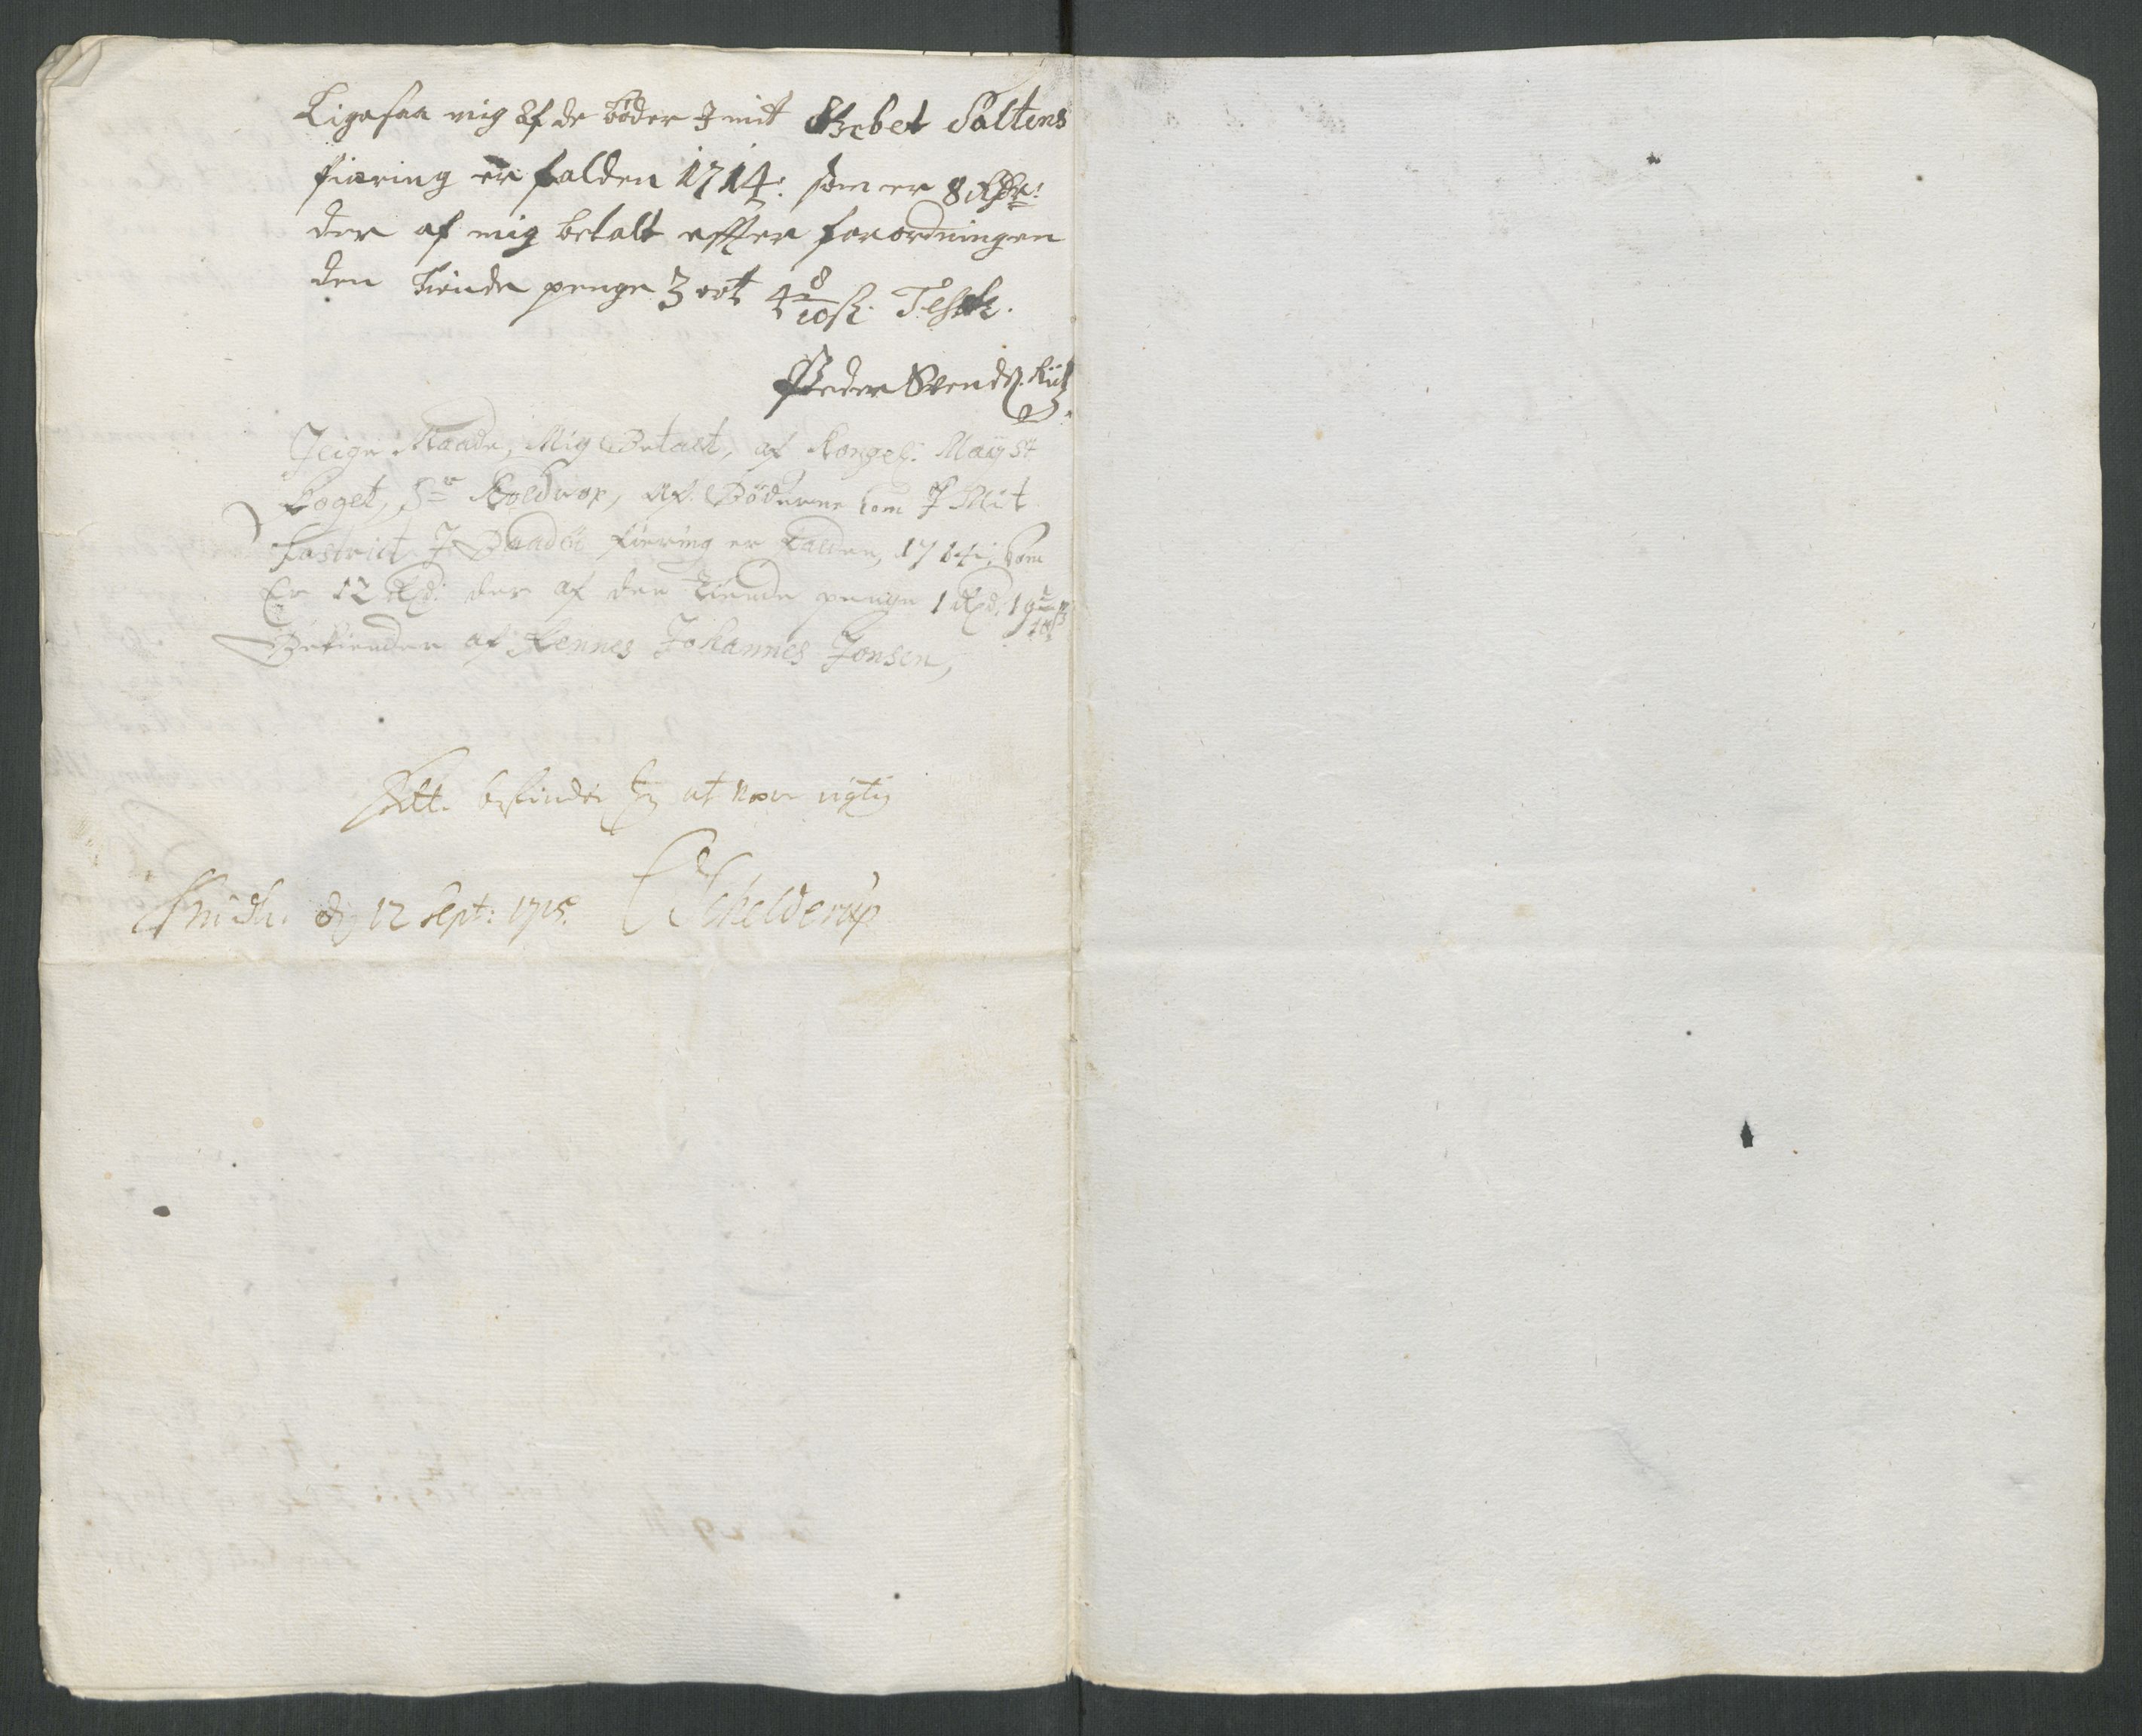 Ligesaa mig af de bøder I mit Saltens
fiæring er falden 1714: som er 8 Rdr:
der af mig betalt effter forordningen
den tiende penge 3 ort 4 8/10 s.
Peder Svends.
I lige Maade, Mig Betalt, af Kongel: Mayst
Foget, Sr af Böderne som I Mit
I fiering er falden, 1714, som
Er 12 Rd: der af den tiende penge 1 Rd, 19
Bekiender af Hennes Johannes Jonsen,
befinder Jeg at være rigtig
d: 12 Sept: 1715. Schelderup